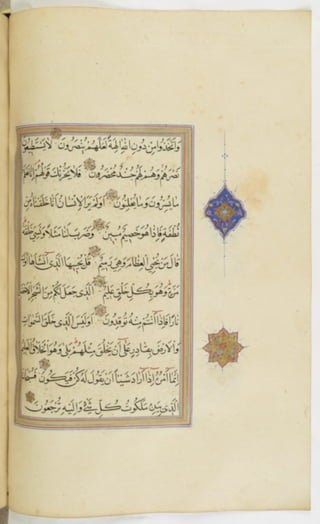 وَاتَّخَذُوا مِنْ دُونِ اللَّهِ آلِهَةً لَعَلَّهُمْ يُنْصَرُونَ لَا يَسْتَطِيعُونَ
نَصْرَهُمْ وَهُمْ لَهُمْ جُنْدٌ مُحْضَرُونَ فَلَا يَحْزُنْكَ قَوْلُهُمْ إِنَّا نَعْلَمُ
مَا يُسِرُّونَ وَمَا يُعْلِنُونَ أَوَلَمْ يَرَ الْإِنْسَانُ أَنَّا خَلَقْنَاهُ مِنْ
نُطْفَةٍ فَإِذَا هُوَ خَصِيمٌ مُبِينٌ وَضَرَبَ لَنَا مَثَلًا وَنَسِيَ خَلْقَهُ
قَالَ مَنْ يُحْيِي الْعِظَامَ وَهِيَ رَمِيمٌ قُلْ يُحْيِيهَا الَّذِي أَنْشَأَهَا أَوَّلَ
مَرَّةٍ وَهُوَ بِكُلِّ خَلْقٍ عَلِيمٌ الَّذِي جَعَلَ لَكُمْ مِنَ الشَّجَرِ الْأَخْضَرِ
نَارًا فَإِذَا أَنْتُمْ مِنْهُ تُوقِدُونَ أَوَلَيْسَ الَّذِي خَلَقَ السَّمَوَاتِ
وَالْأَرْضَ بِقَادِرٍ عَلَى أَنْ يَخْلُقَ مِثْلَهُمْ بَلَى وَهُوَ الْخَلَّاقُ الْعَلِيمُ
إِنَّمَا أَمْرُهُ إِذَا أَرَادَ شَيْئًا أَنْ يَقُولَ لَهُ كُنْ فَيَكُونُ فَسُبْحَانَ
الَّذِي بِيَدِهِ مَلَكُوتُ كُلِّ شَيْءٍ وَإِلَيْهِ تُرْجَعُونَ